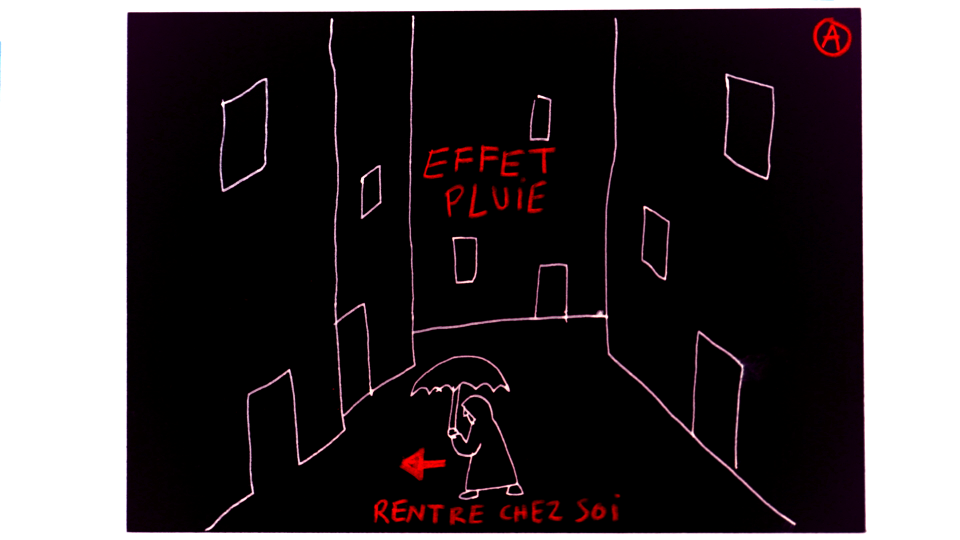 A
EFFET
PLUIE
RENTRE CHEZ SOI